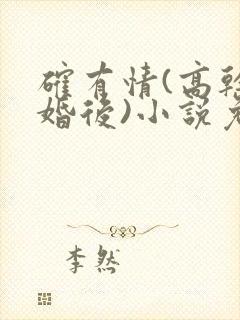 確有情(高幹
婚後)小說
李然